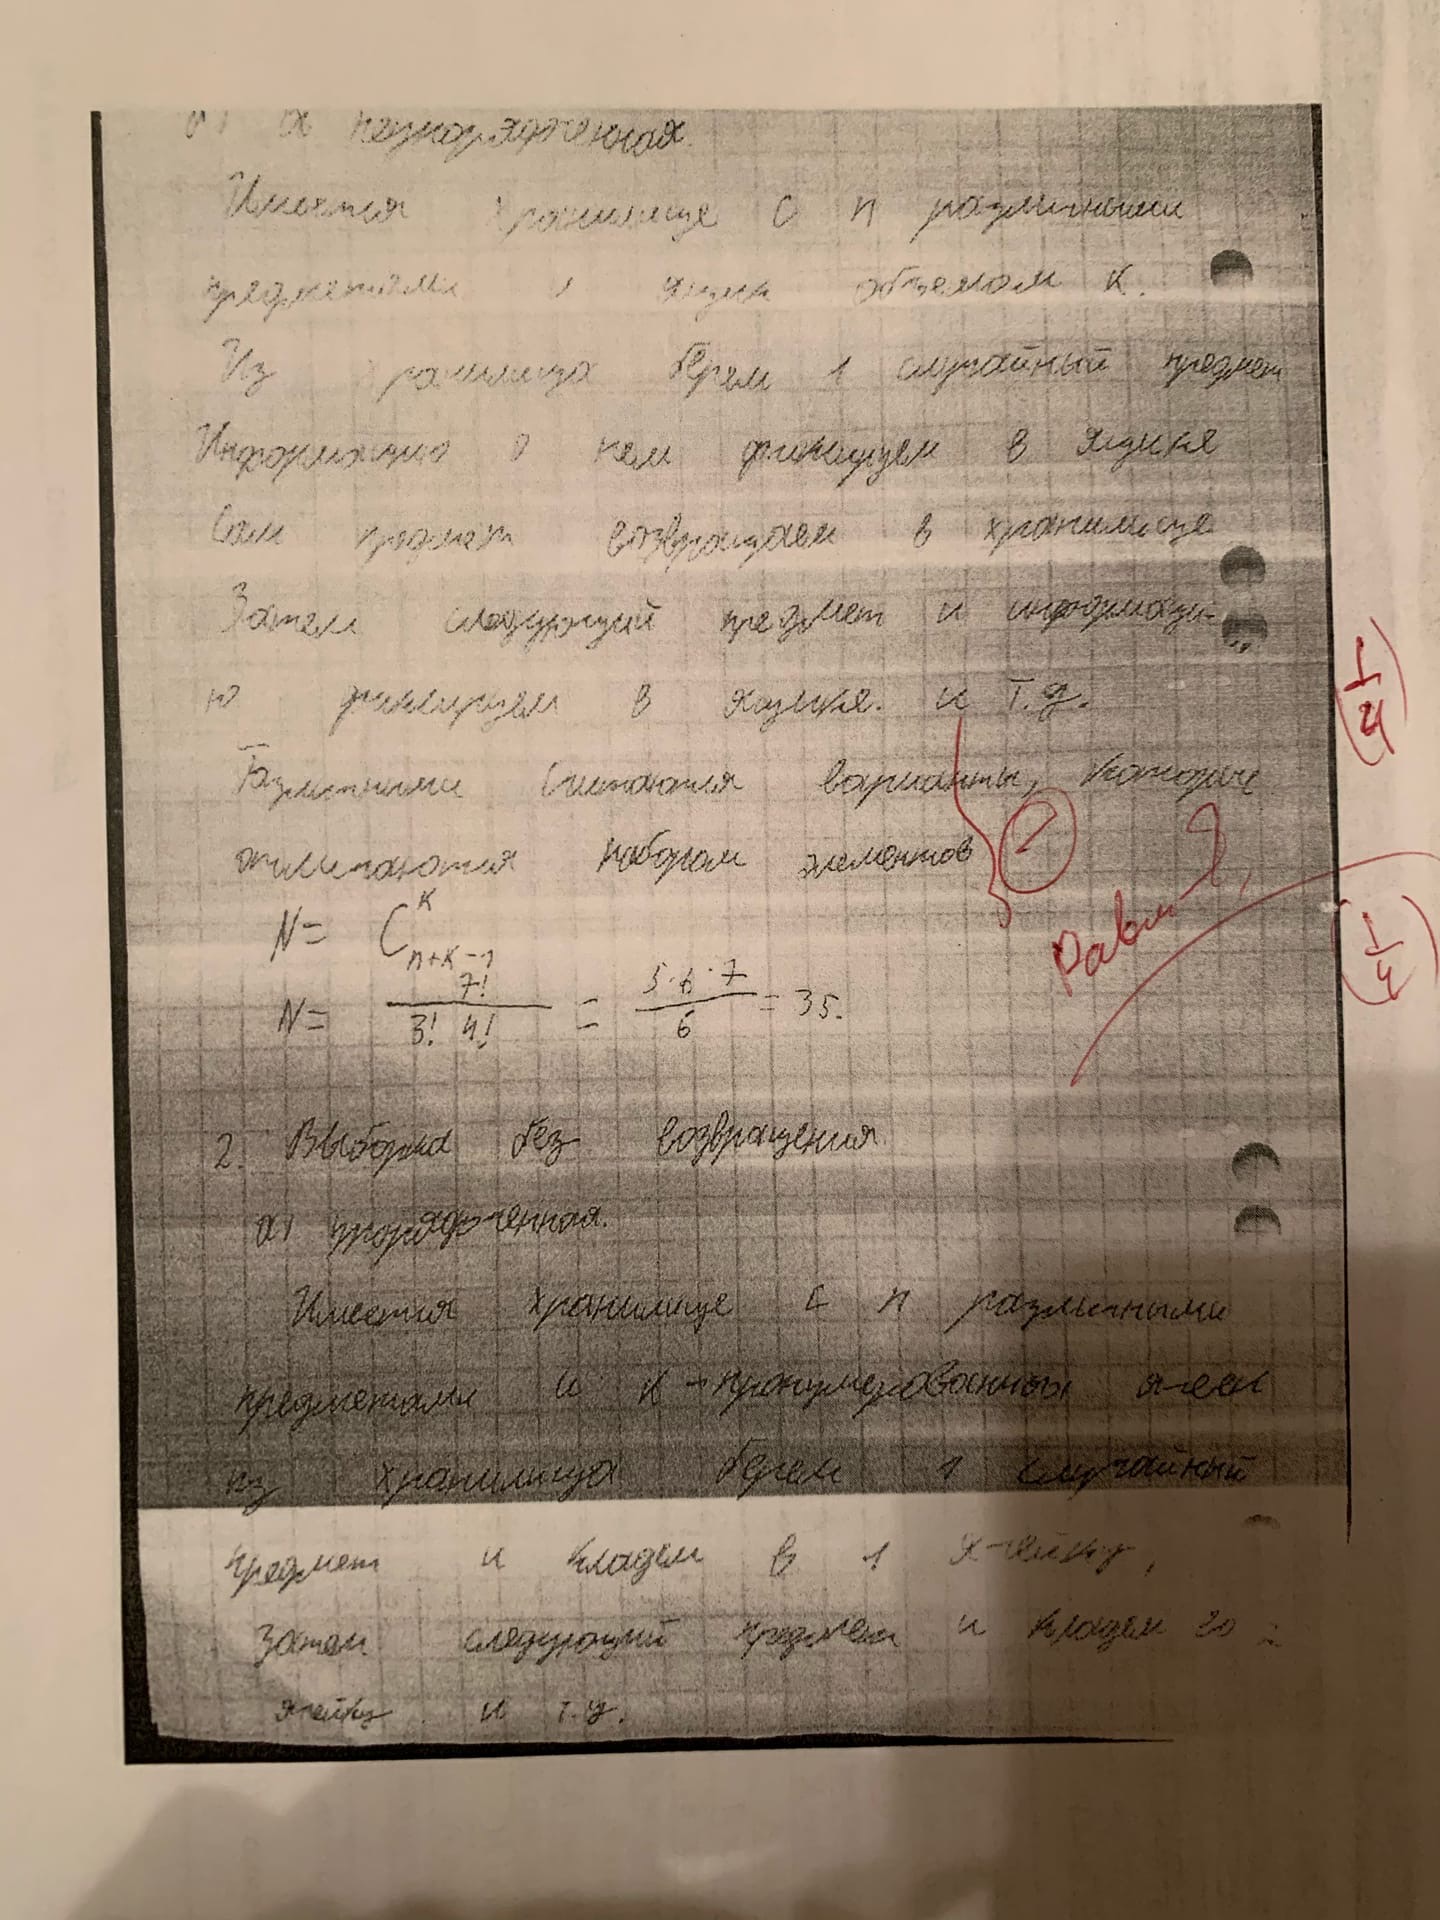 неупорядоченная.
Имеется хранилище с n различными
предметами и ящик объемом k.
Из хранилища берем 1 случайный предмет
Информацию о нем фиксируем в ящике
Сам предмет возвращаем в хранилище
Затем следующий предмет и информаци-
ю фиксируем в ящике. и т.д.
Различными считаются варианты, которые
отличаются набором элементов
N = C_{n+k-1}^{k}
N = 7!/(3! 4!) = 5·6·7/6 = 35.
2. Выборка без возвращения
а) упорядоченная.
Имеется хранилище с n различными
предметами и k - пронумерованных ячеек
из хранилища берем 1 случайный
предмет и кладем в 1 ячейку,
Затем следующий предмет и кладем во 2
ячейку и т.д.